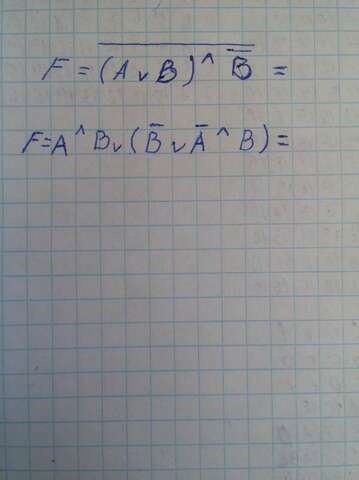 F = \overline{(A ∨ B) ^ \overline{B}} =
F = A ^ B ∨ (B̅ ∨ A̅ ^ B) =